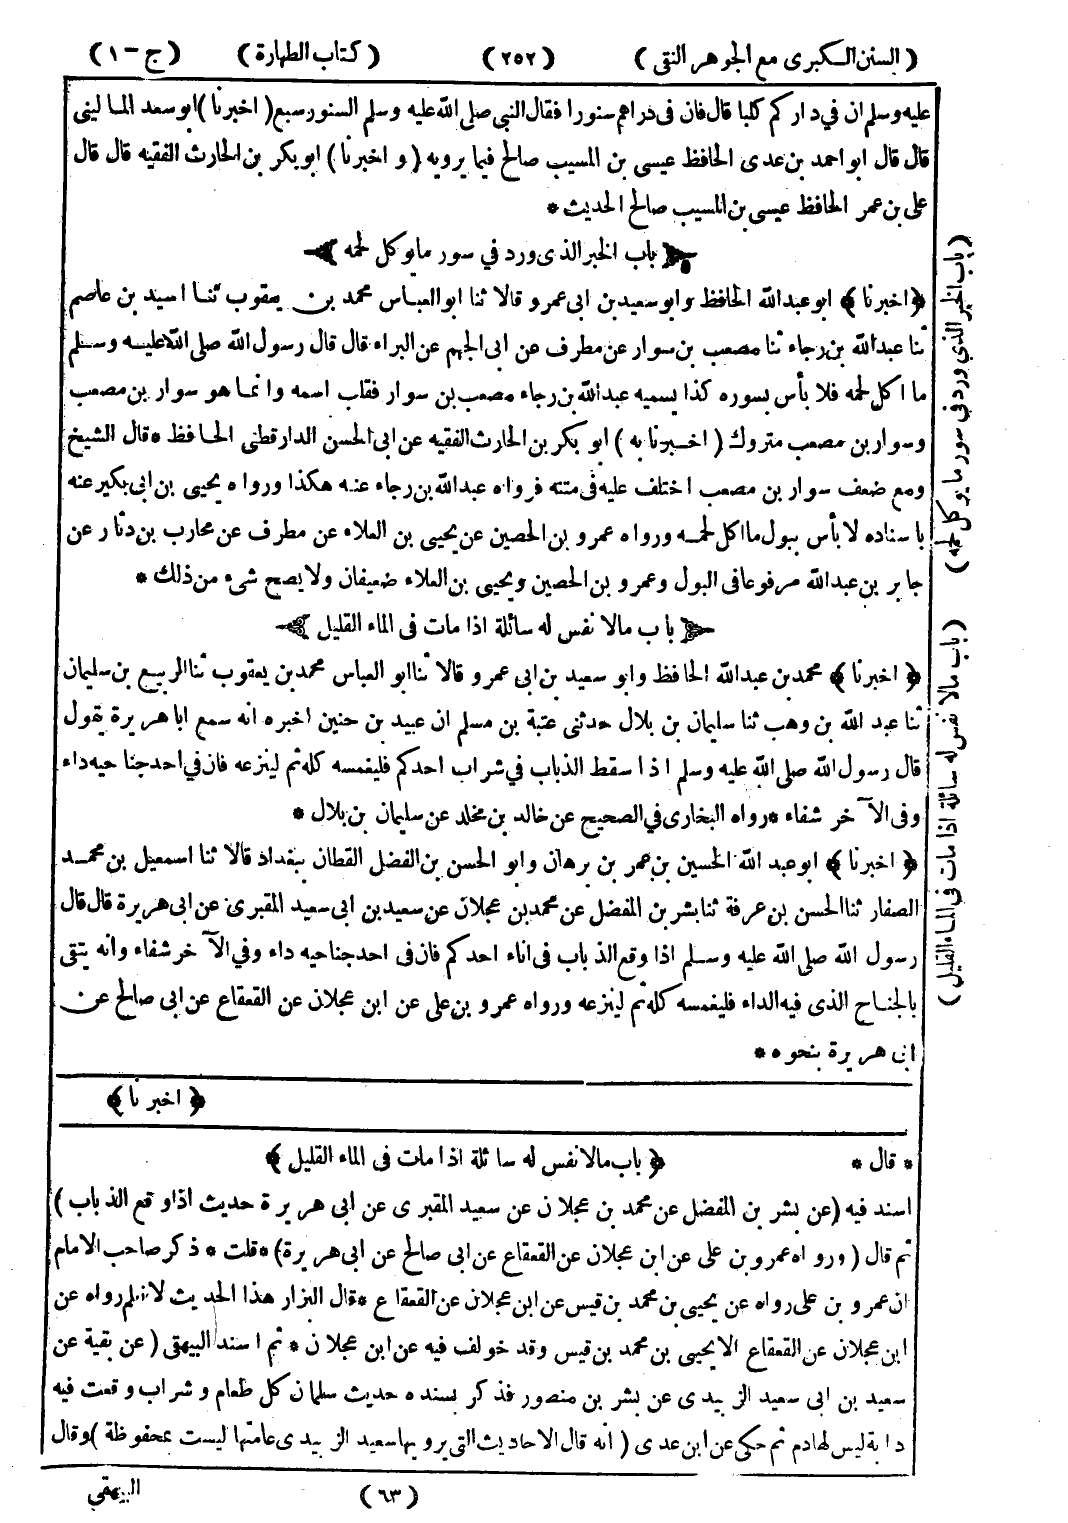 ( السنن الكبرى مع الجوهر النقى ) ( ٢٥٢ ) ( كتاب الطهارة ) ( ج - ١ )
عليه وسلم ان في داركم كلبا قال فان فى دراهم سنورا فقال النبي صلى الله عليه وسلم السنور سبع ( اخبرنا ) ابو سعد المالينى
قال قال ابو احمد بن عدى الحافظ عيسى بن المسيب صالح فيما يرويه ( و اخبرنا ) ابو بكر بن الحارث الفقيه قال قال
على بن عمر الحافظ عيسى بن المسيب صالح الحديث *
باب الخبر الذى ورد في سور مايوكل لحمه
﴿ اخبرنا ﴾ ابو عبد الله الحافظ وابو سعيد بن ابى عمرو قالا ثنا ابو العباس محمد بن يعقوب ثنا اسيد بن عاصم
ثنا عبد الله بن رجاء ثنا مصعب بن سوار عن مطرف عن ابى الجهم عن البراء قال قال رسول الله صلى الله عليه وسلم
ما اكل لحمه فلا بأس بسوره كذا يسميه عبد الله بن رجاء مصعب بن سوار فقلب اسمه وانما هو سوار بن مصعب
وسوار بن مصعب متروك ( اخبرنا به ) ابو بكر بن الحارث الفقيه عن ابى الحسن الدارقطنى الحافظ * قال الشيخ
ومع ضعف سوار بن مصعب اختلف عليه فى متنه فرواه عبد الله بن رجاء عنه هكذا ورواه يحيى بن ابى بكير عنه
باسناده لا بأس ببول ما اكل لحمه ورواه عمرو بن الحصين عن يحيى بن العلاء عن مطرف عن محارب بن دثار عن
جابر بن عبد الله مرفوعا فى البول وعمرو بن الحصين ويحيى بن العلاء ضعيفان ولا يصح شىء من ذلك *
باب مالا نفس له سائلة اذا مات فى الماء القليل
﴿ اخبرنا ﴾ محمد بن عبد الله الحافظ وابو سعيد بن ابى عمرو قالا ثنا ابو العباس محمد بن يعقوب ثنا الربيع بن سليمان
ثنا عبد الله بن وهب ثنا سليمان بن بلال حدثنى عتبة بن مسلم ان عبيد بن حنين اخبره انه سمع ابا هريرة يقول
قال رسول الله صلى الله عليه وسلم اذا سقط الذباب في شراب احدكم فليغمسه كله ثم لينزعه فان في احد جناحيه داء
وفى الآخر شفاء * رواه البخارى في الصحيح عن خالد بن مخلد عن سليمان بن بلال *
﴿ اخبرنا ﴾ ابو عبد الله الحسين بن عمر بن برهان وابو الحسن بن الفضل القطان ببغداد قالا ثنا اسمعيل بن محمد
الصفار ثنا الحسن بن عرفة ثنا بشر بن المفضل عن محمد بن عجلان عن سعيد بن ابى سعيد المقبرى عن ابى هريرة قال قال
رسول الله صلى الله عليه وسلم اذا وقع الذباب فى اناء احدكم فان فى احد جناحيه داء وفي الآخر شفاء وانه يتقى
بالجناح الذى فيه الداء فليغمسه كله ثم لينزعه ورواه عمرو بن على عن ابن عجلان عن القعقاع عن ابى صالح عن
ابى هريرة بنحوه **
﴿ اخبرنا ﴾
* قال * ﴿ باب مالا نفس له سائلة اذا مات فى الماء القليل ﴾
اسند فيه ( عن بشر بن المفضل عن محمد بن عجلان عن سعيد المقبرى عن ابى هريرة حديث اذا وقع الذباب )
ثم قال ( ورواه عمرو بن على عن ابن عجلان عن القعقاع عن ابى صالح عن ابى هريرة ) * قلت * ذكر صاحب الامام
ان عمرو بن على رواه عن يحيى بن محمد بن قيس عن ابن عجلان عن القعقاع * قال البزار هذا الحديث لا نعلم رواه عن
ابن عجلان عن القعقاع الا يحيى بن محمد بن قيس وقد خولف فيه عن ابن عجلان * ثم اسند البيهقى ( عن بقية عن
سعيد بن ابى سعيد الزبيدى عن بشر بن منصور فذكر بسنده حديث سلمان كل طعام وشراب وقعت فيه
دابة ليس لها دم ثم حكى عن ابن عدى ( انه قال الاحاديث التى يرويها سعيد الزبيدى عامتها ليست بمحفوظة ) وقال
( ٦٣ ) البيهقى
( باب الخبر الذي ورد في سور مايوكل لحمه )
( باب مالا نفس له سائلة اذا مات فى الماء القليل )